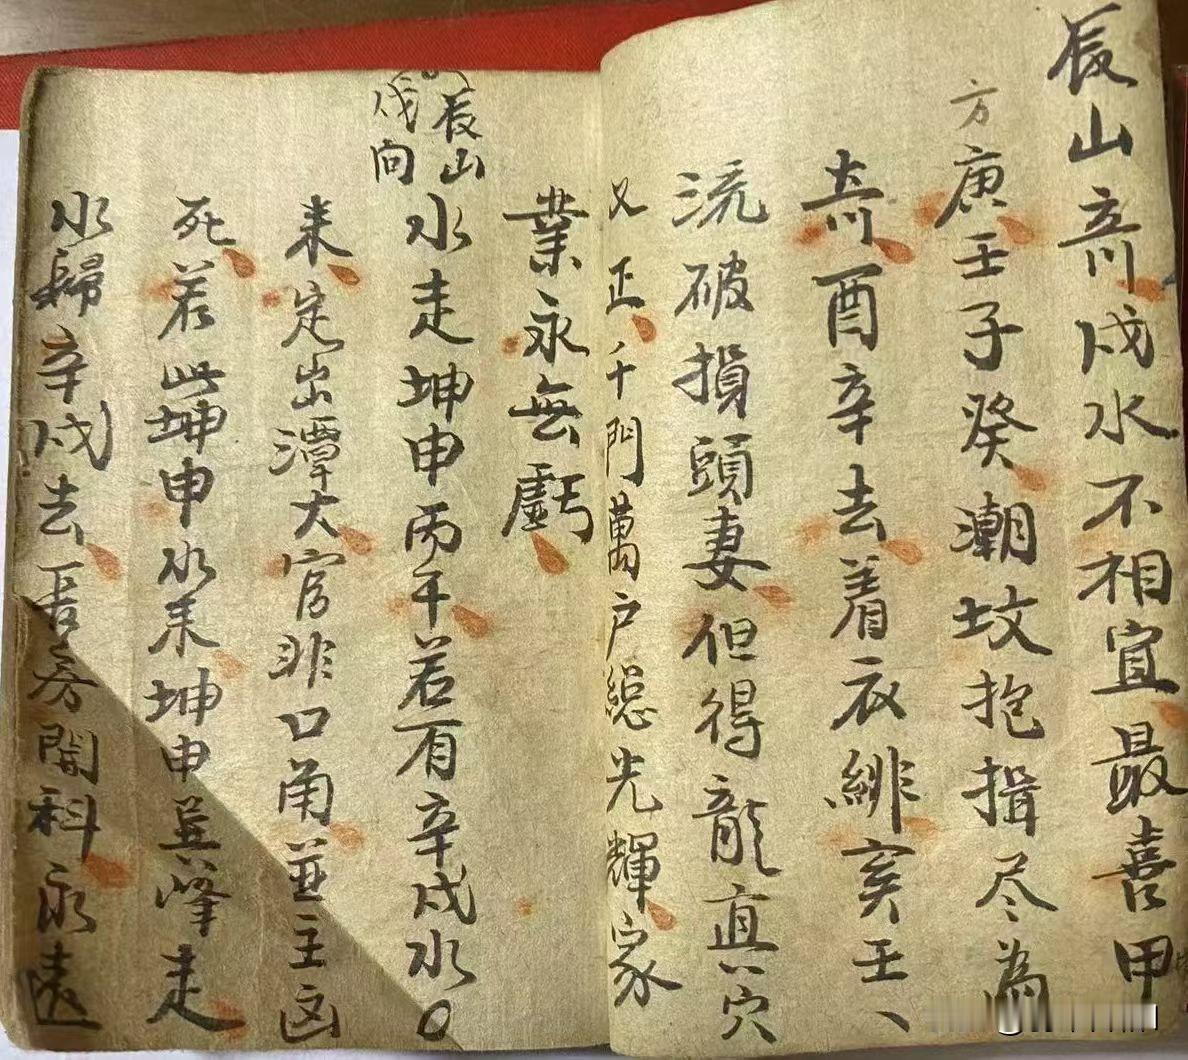 辰山辛川戌水不相宜最喜甲
方庚壬子癸潮坟抱揖尽為
去川酉辛去着衣緋亥壬、
流破損頭妻但得龍真穴
又正千門萬户總光輝家
業永無虧
辰山
戌向
水走坤申而干若有辛戌水
来定出潭大官非口角並主凶
死若此坤申水来坤申異峰走
水歸辛戌去長房開科永遠